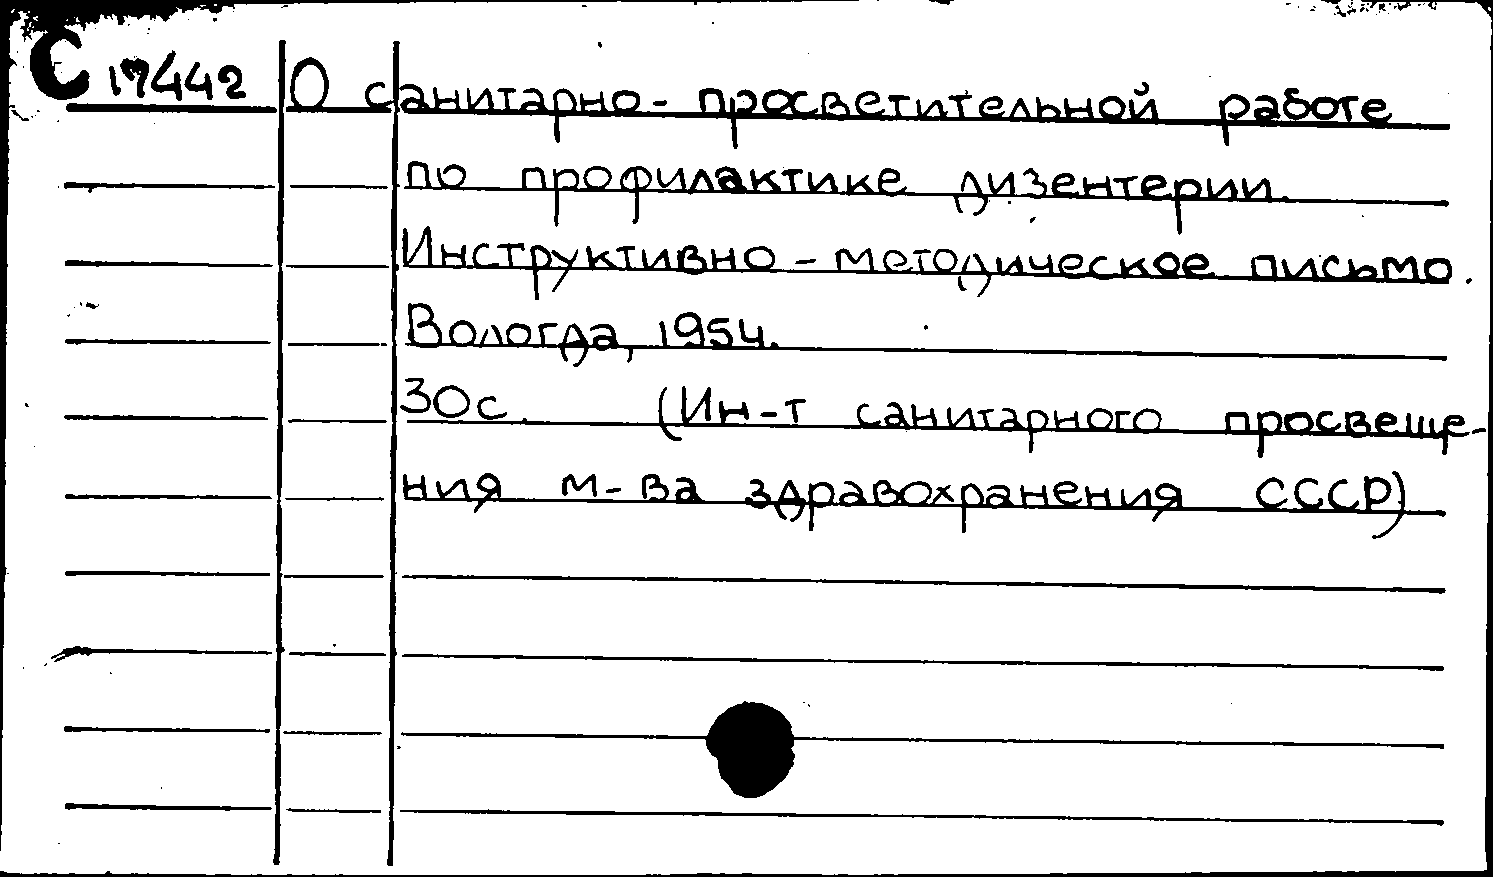 С 17442 О санитарно-просветительной работе
по профилактике дизентерии.
Инструктивно-методическое письмо.
Вологда, 1954.
30с. (Ин-т санитарного просвеще-
ния м-ва здравохранения СССР)